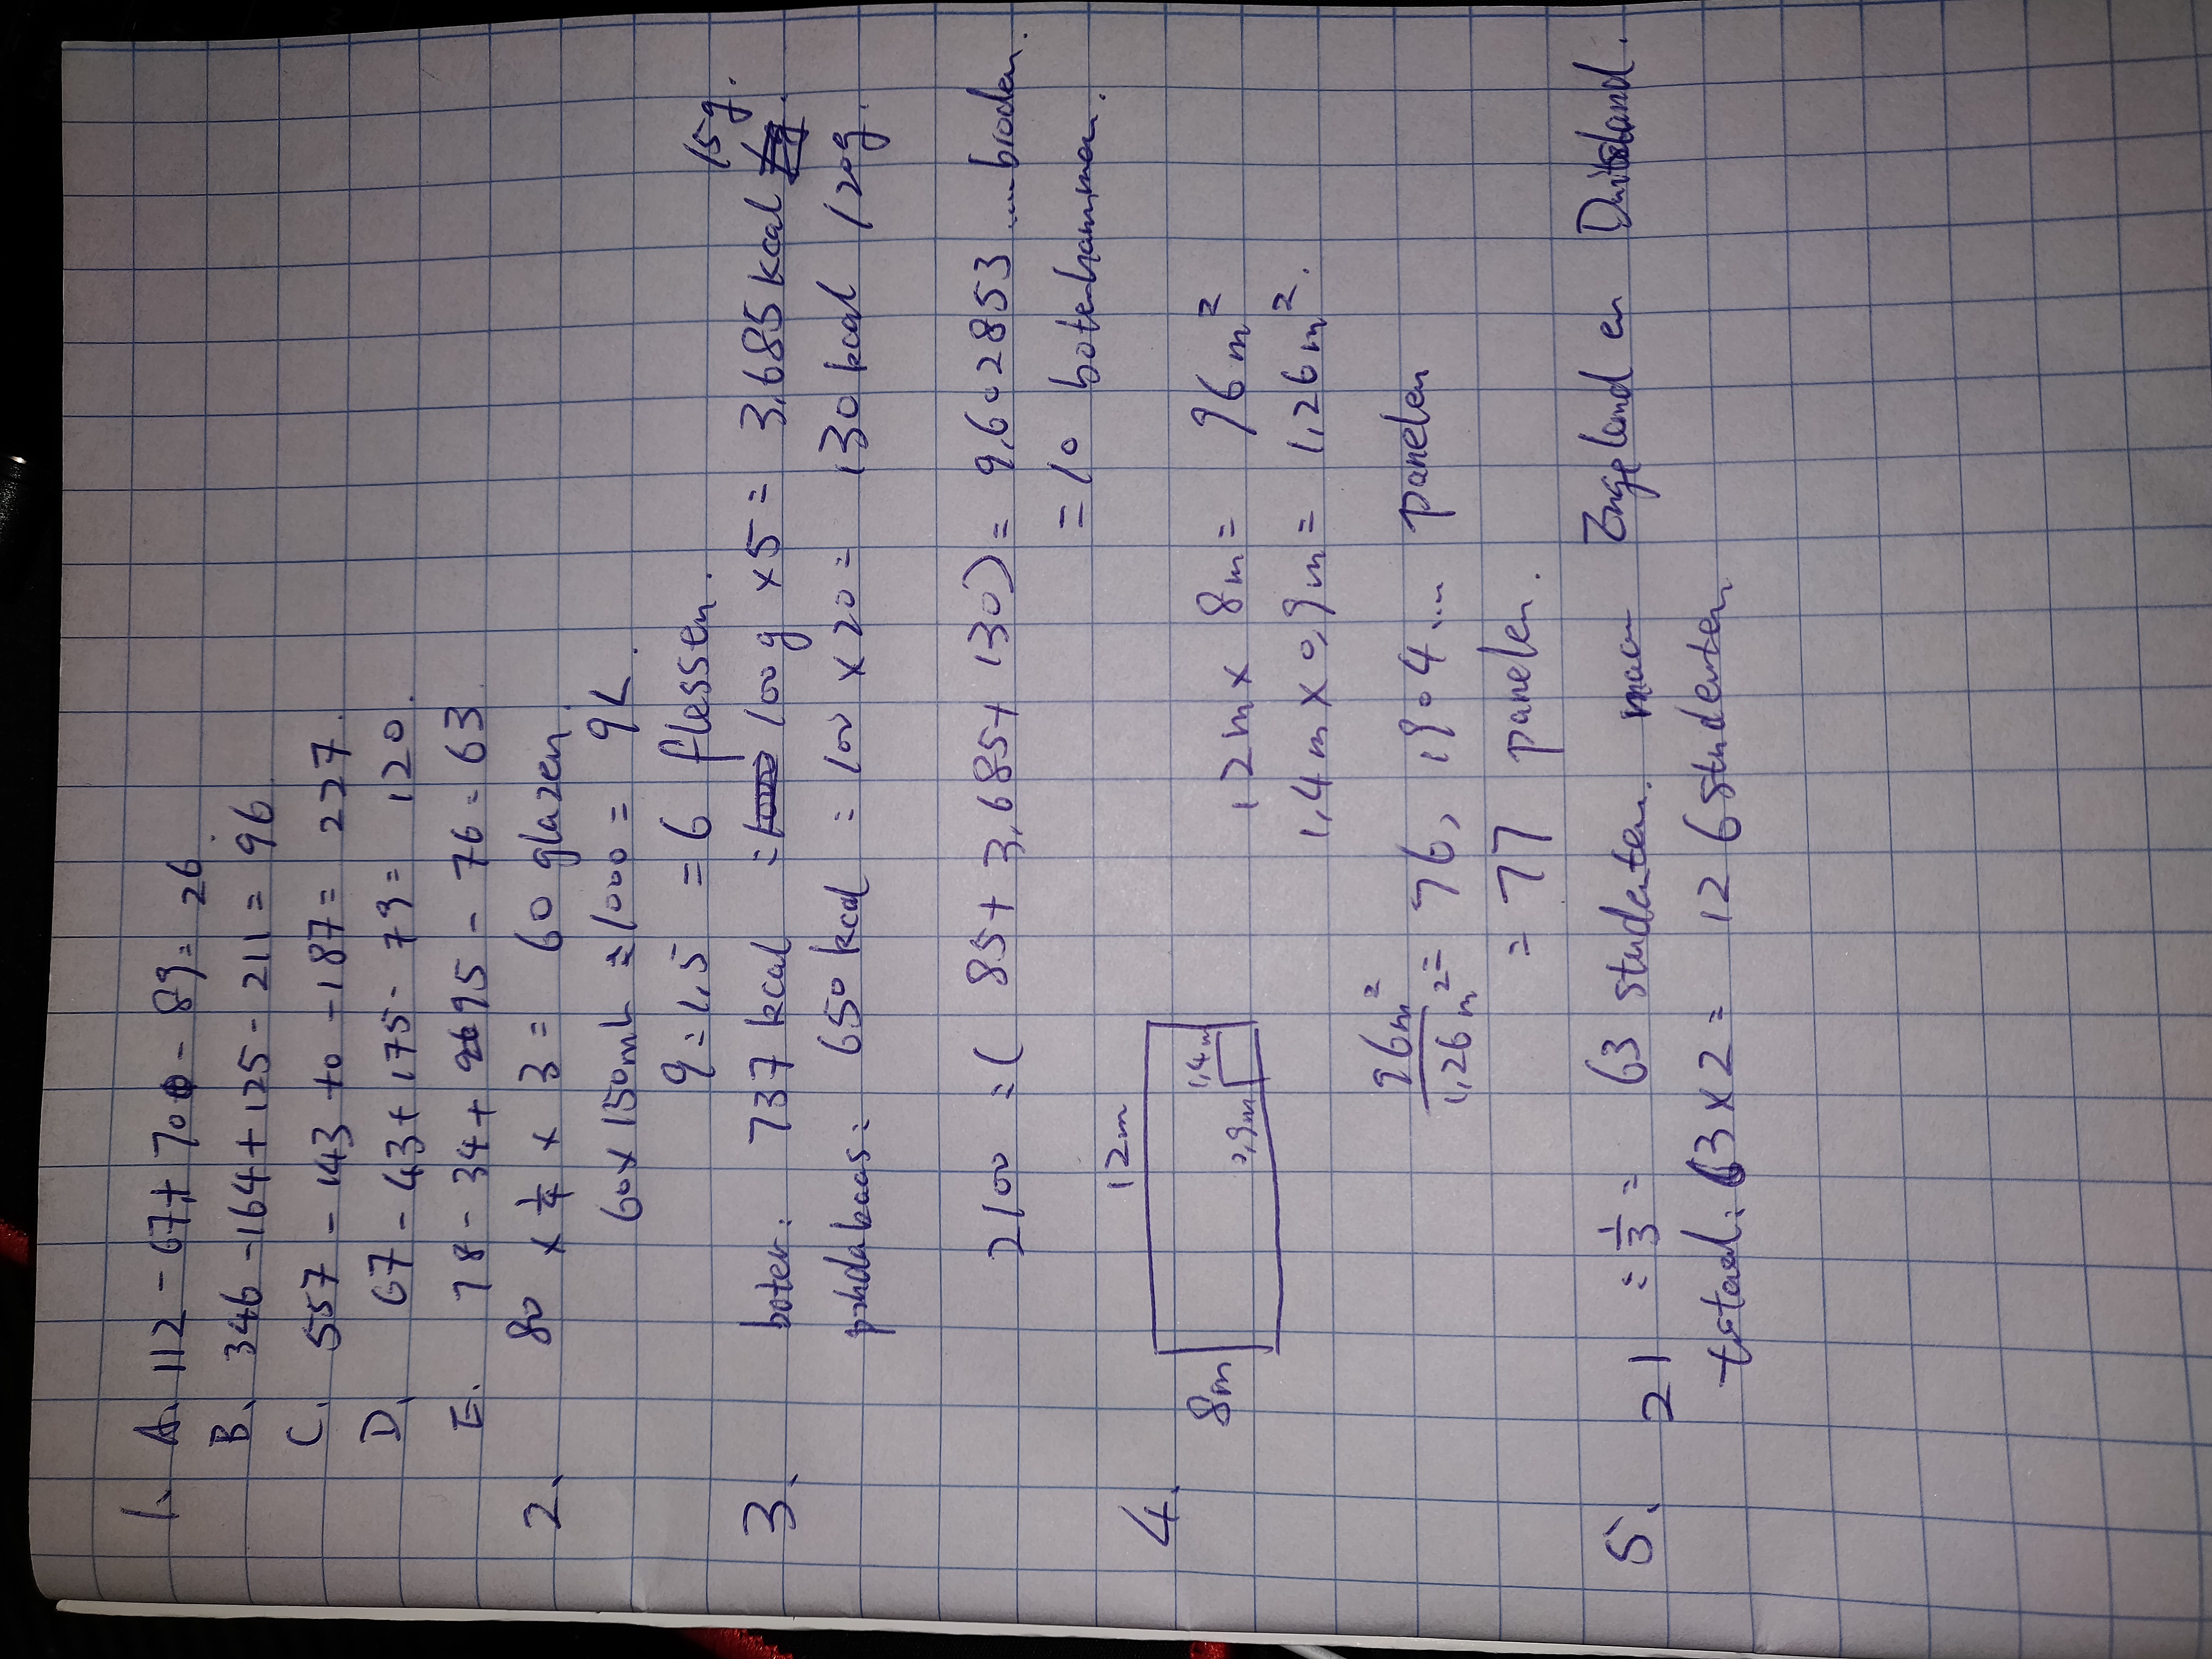 1. A. 112 - 67 + 70 - 89 = 26.
B. 346 - 164 + 125 - 211 = 96
C. 557 - 143 + 0 - 187 = 227.
D. 67 - 43 + 175 - 79 = 120.
E. 78 - 34 + 95 - 76 = 63
2. 80 × 1/4 × 3 = 60 glazen.
60 × 150mL ÷ 1000 = 9L.
9 ÷ 1,5 = 6 flessen.
15g.
3. boter: 737 kcal ÷ 100g × 5 = 3,685 kcal
650 kcal ÷ 100 × 20 = 130 kcal /20g.
2100 ÷ ( 85 + 3,685 + 130) = 9,602853 .... broden.
= 10 boterhammen.
12m
4. 8m 1,4m 0,9m
12m × 8m = 96 m²
1,4m × 0,9m = 1,26 m².
96m² / 1,26 m² = 76,1904... panelen
= 77 panelen.
5. 21 ÷ 1/3 = 63 studenten. naar Engeland en Duitsland.
totaal: 63 × 2 = 126 studenten